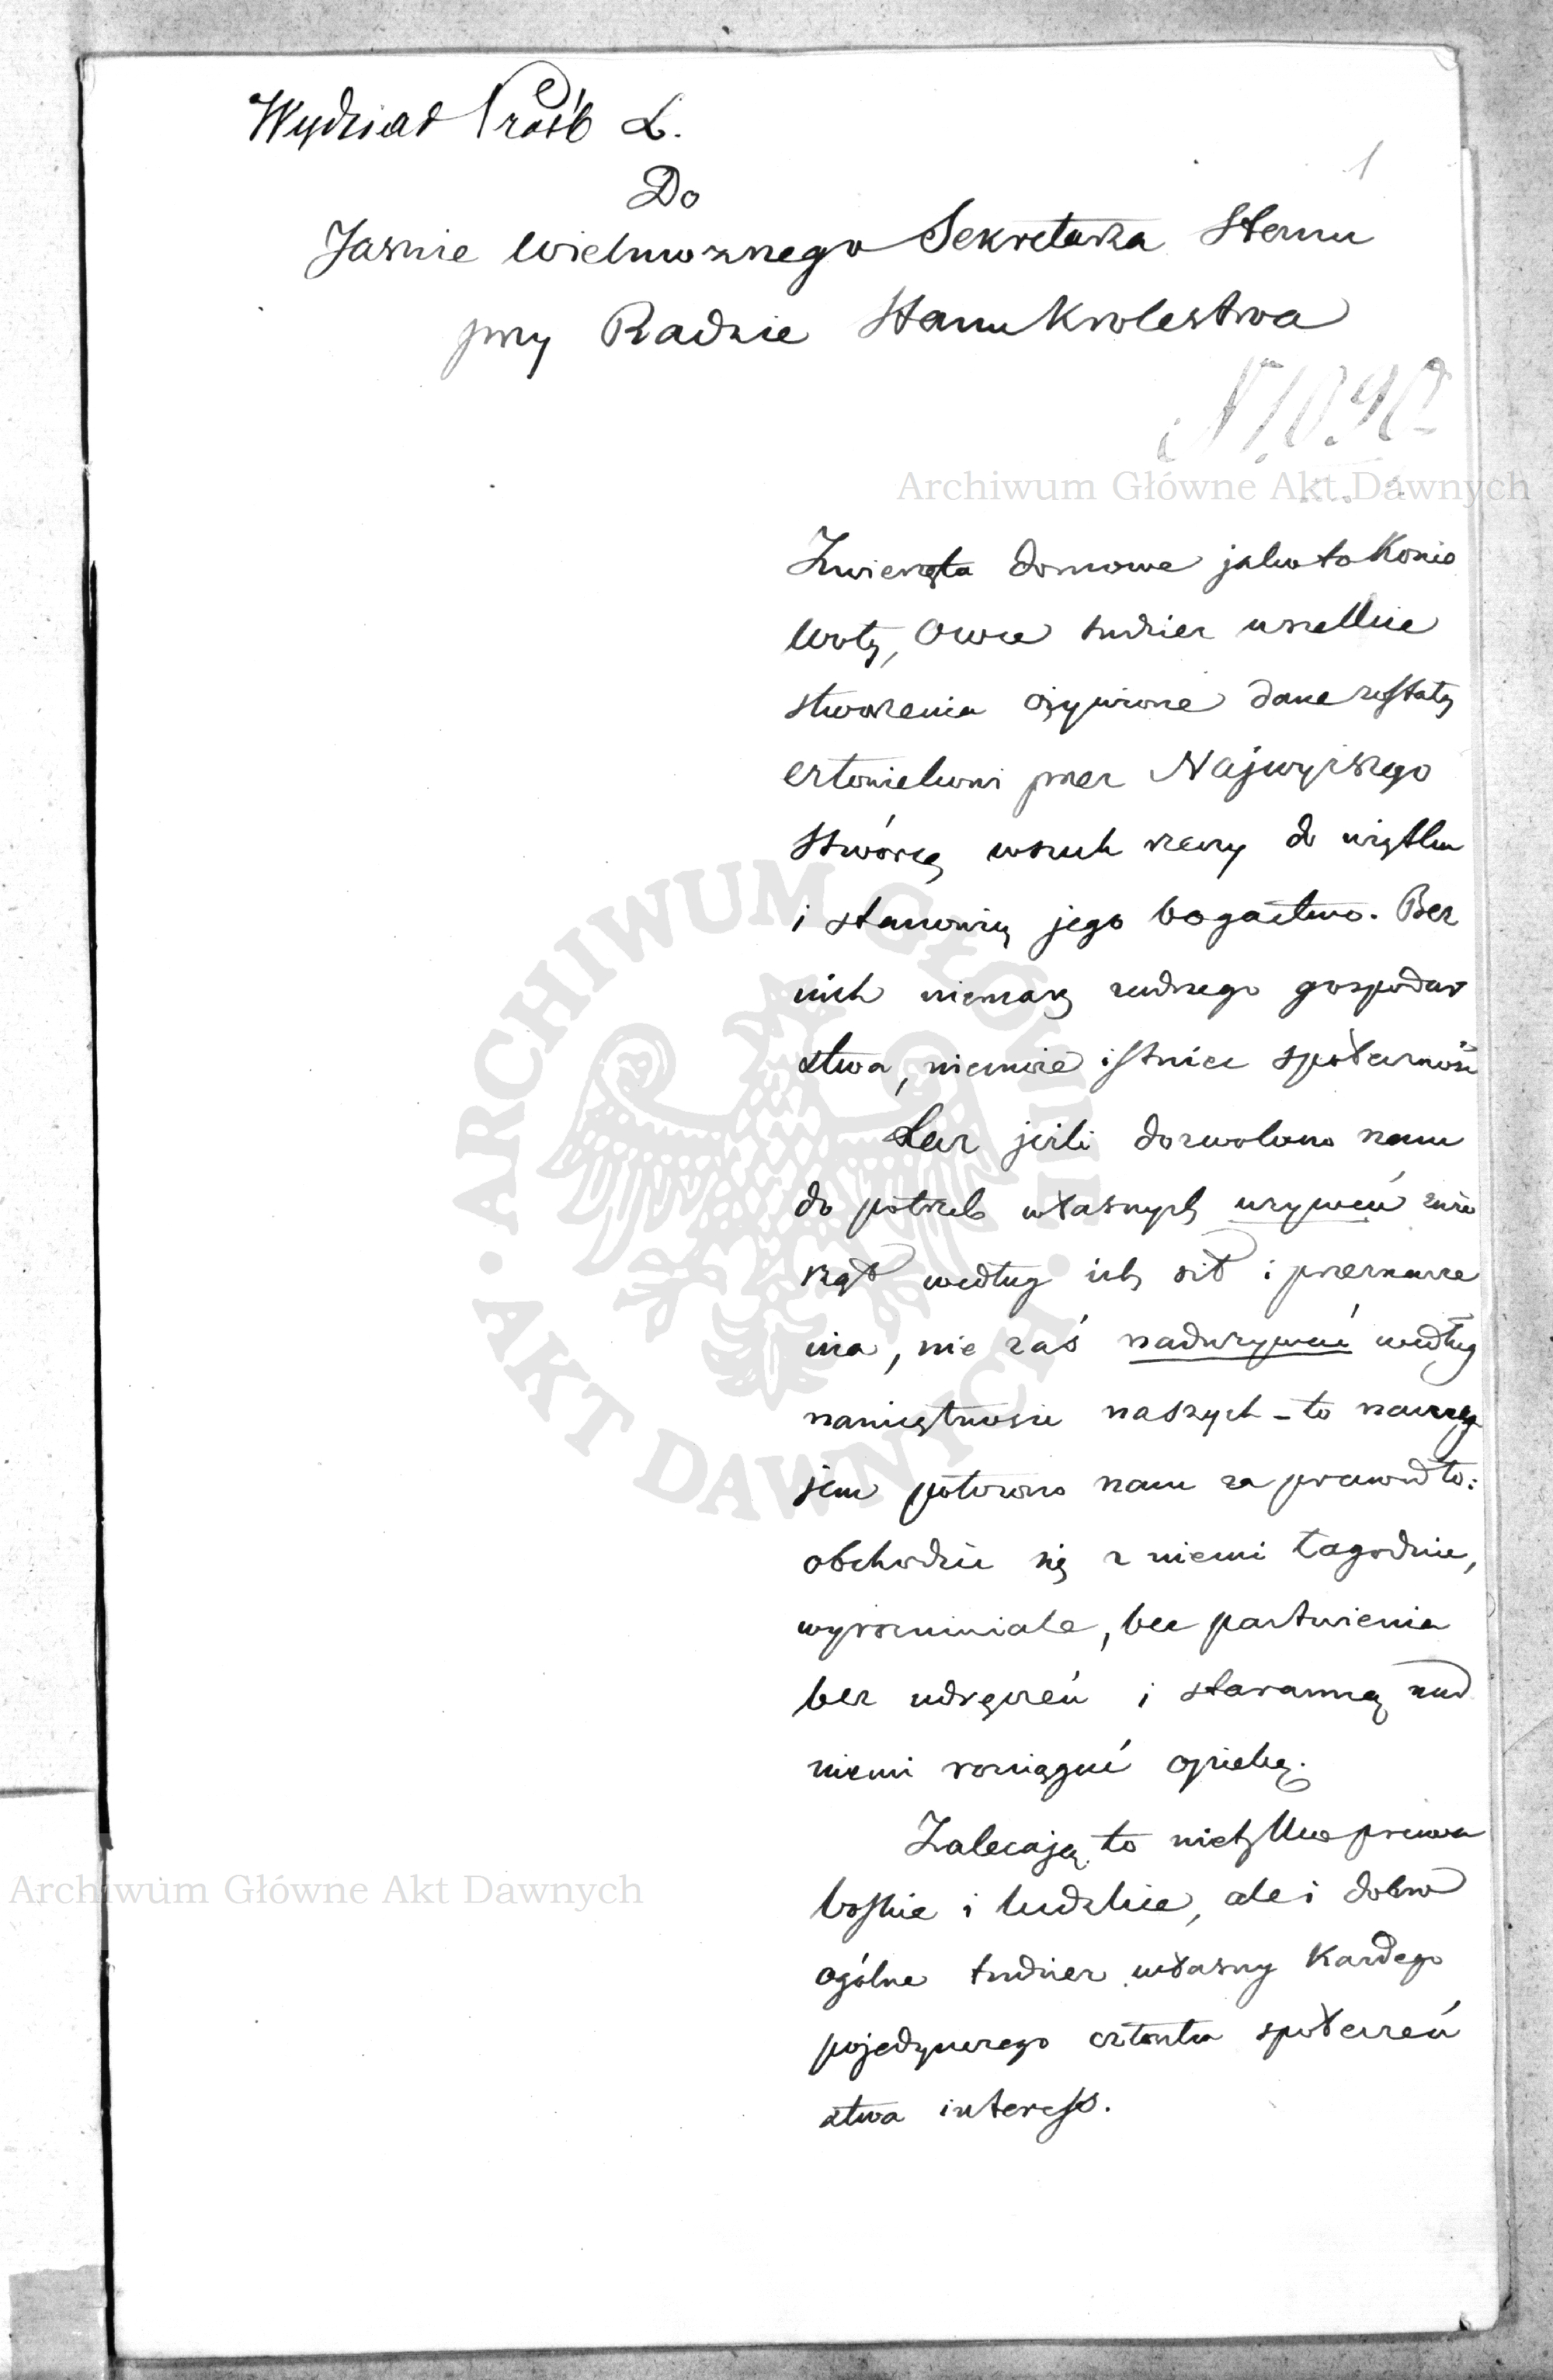 Wydział Próśb L.
1
Do
Jasnie Wielmoznego Sekretarza Stanu
przy Radzie Stanu Krolestwa
N 1090
Archiwum Główne Akt Dawnych
Zwierzęta domowe jako to Konie
Woły, Owce tudziez wszelkie
stworzenia ożywione dane zostały
człowiekowi przez Najwyższego
Stwórcę wszech rzeczy do użytku
i stanowią jego bogactwo. Bez
nich niemasz zadnego gospodar
stwa, niemoze istniec społeczność
Lecz jeśli dozwolono nam
do potrzeb własnych uzywać zwie
rząt według ich sił i przeznacze
nia, nie zaś naduzywać według
namiętnosci naszych – to nawza
jem położono nam za prawidło:
obchodzic się z niemi łagodnie,
wyrozumiale, bez pastwienia
bez udręczeń i staranną nad
niemi rozciągnć opiekę.
Zalecają to nietylko prawa
boskie i ludzkie, ale i dobro
ogólne tudziez własny Kazdego
pojedynczego członka społeczeń
stwa interess.
Archiwum Główne Akt Dawnych
ARCHIWUM GŁÓWNE AKT DAWNYCH